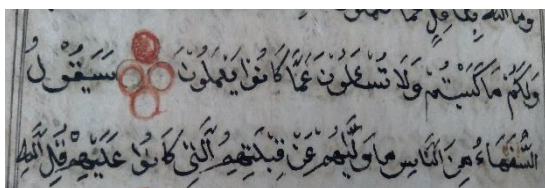 وما الله بغافل عما تعملون
وَلَكُمْ مَا كَسَبْتُمْ وَلَا تُسْـَٔلُونَ عَمَّا كَانُوا يَعْمَلُونَ سَيَقُولُ
السُّفَهَاءُ مِنَ النَّاسِ مَا وَلَّىٰهُمْ عَنْ قِبْلَتِهِمُ الَّتِي كَانُوا عَلَيْهَا قُلْ لِلَّهِ